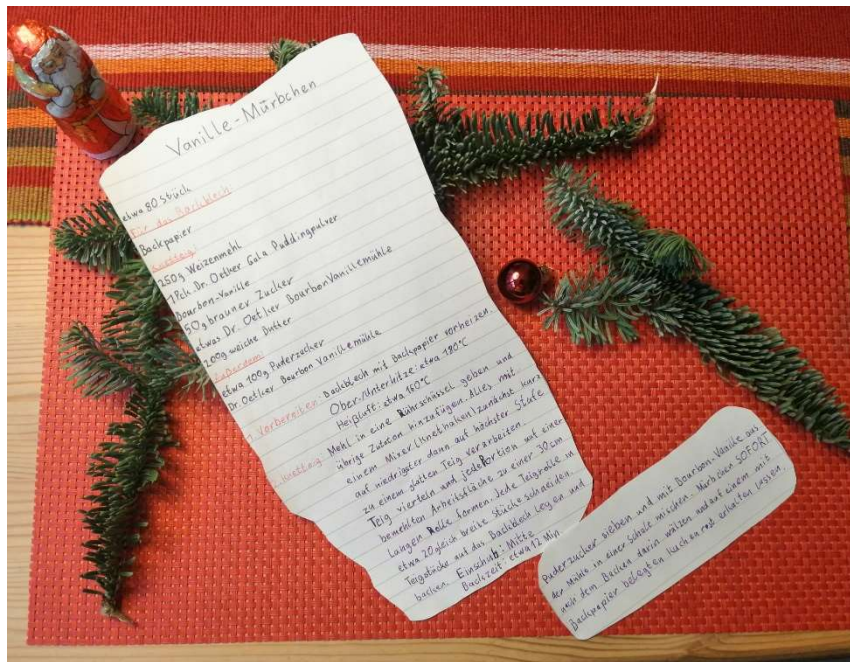 Vanille-Mürbchen
etwa 80 Stück
Für das Backblech
Backpapier
Knetteig:
250g Weizenmehl
1 Pck. Dr. Oetker Gala Puddingpulver
Bourbon-Vanille
50g brauner Zucker
etwas Dr. Oetker Bourbon Vanillemühle
200g weiche Butter
Außerdem:
etwa 100g Puderzucker
Dr. Oetker Bourbon Vanillemühle
1. Vorbereiten: Backblech mit Backpapier vorheizen.
Ober-/Unterhitze: etwa 180°C
Heißluft: etwa 160°C
Knetteig: Mehl in eine Rührschüssel geben und
übrige Zutaten hinzufügen. Alles mit
einem Mixer (Knethaken) zunächst kurz
auf niedrigster dann auf höchster Stufe
zu einem glatten Teig verarbeiten.
Teig vierteln und jede Portion auf einer
bemehlten Arbeitsfläche zu einer 30cm
langen Rolle formen. Jede Teigrolle in
etwa 20 gleich breite Stücke schneiden.
Teigstücke auf das Backblech legen und
backen. Einschub: Mitte
Backzeit: etwa 12 Min.
Puderzucker sieben und mit Bourbon-Vanille aus
der Mühle in einer Schale mischen. Mürbchen SOFORT
nach dem Backen darin wälzen und auf einem mit
Backpapier belegten Kuchenrost erkalten lassen.